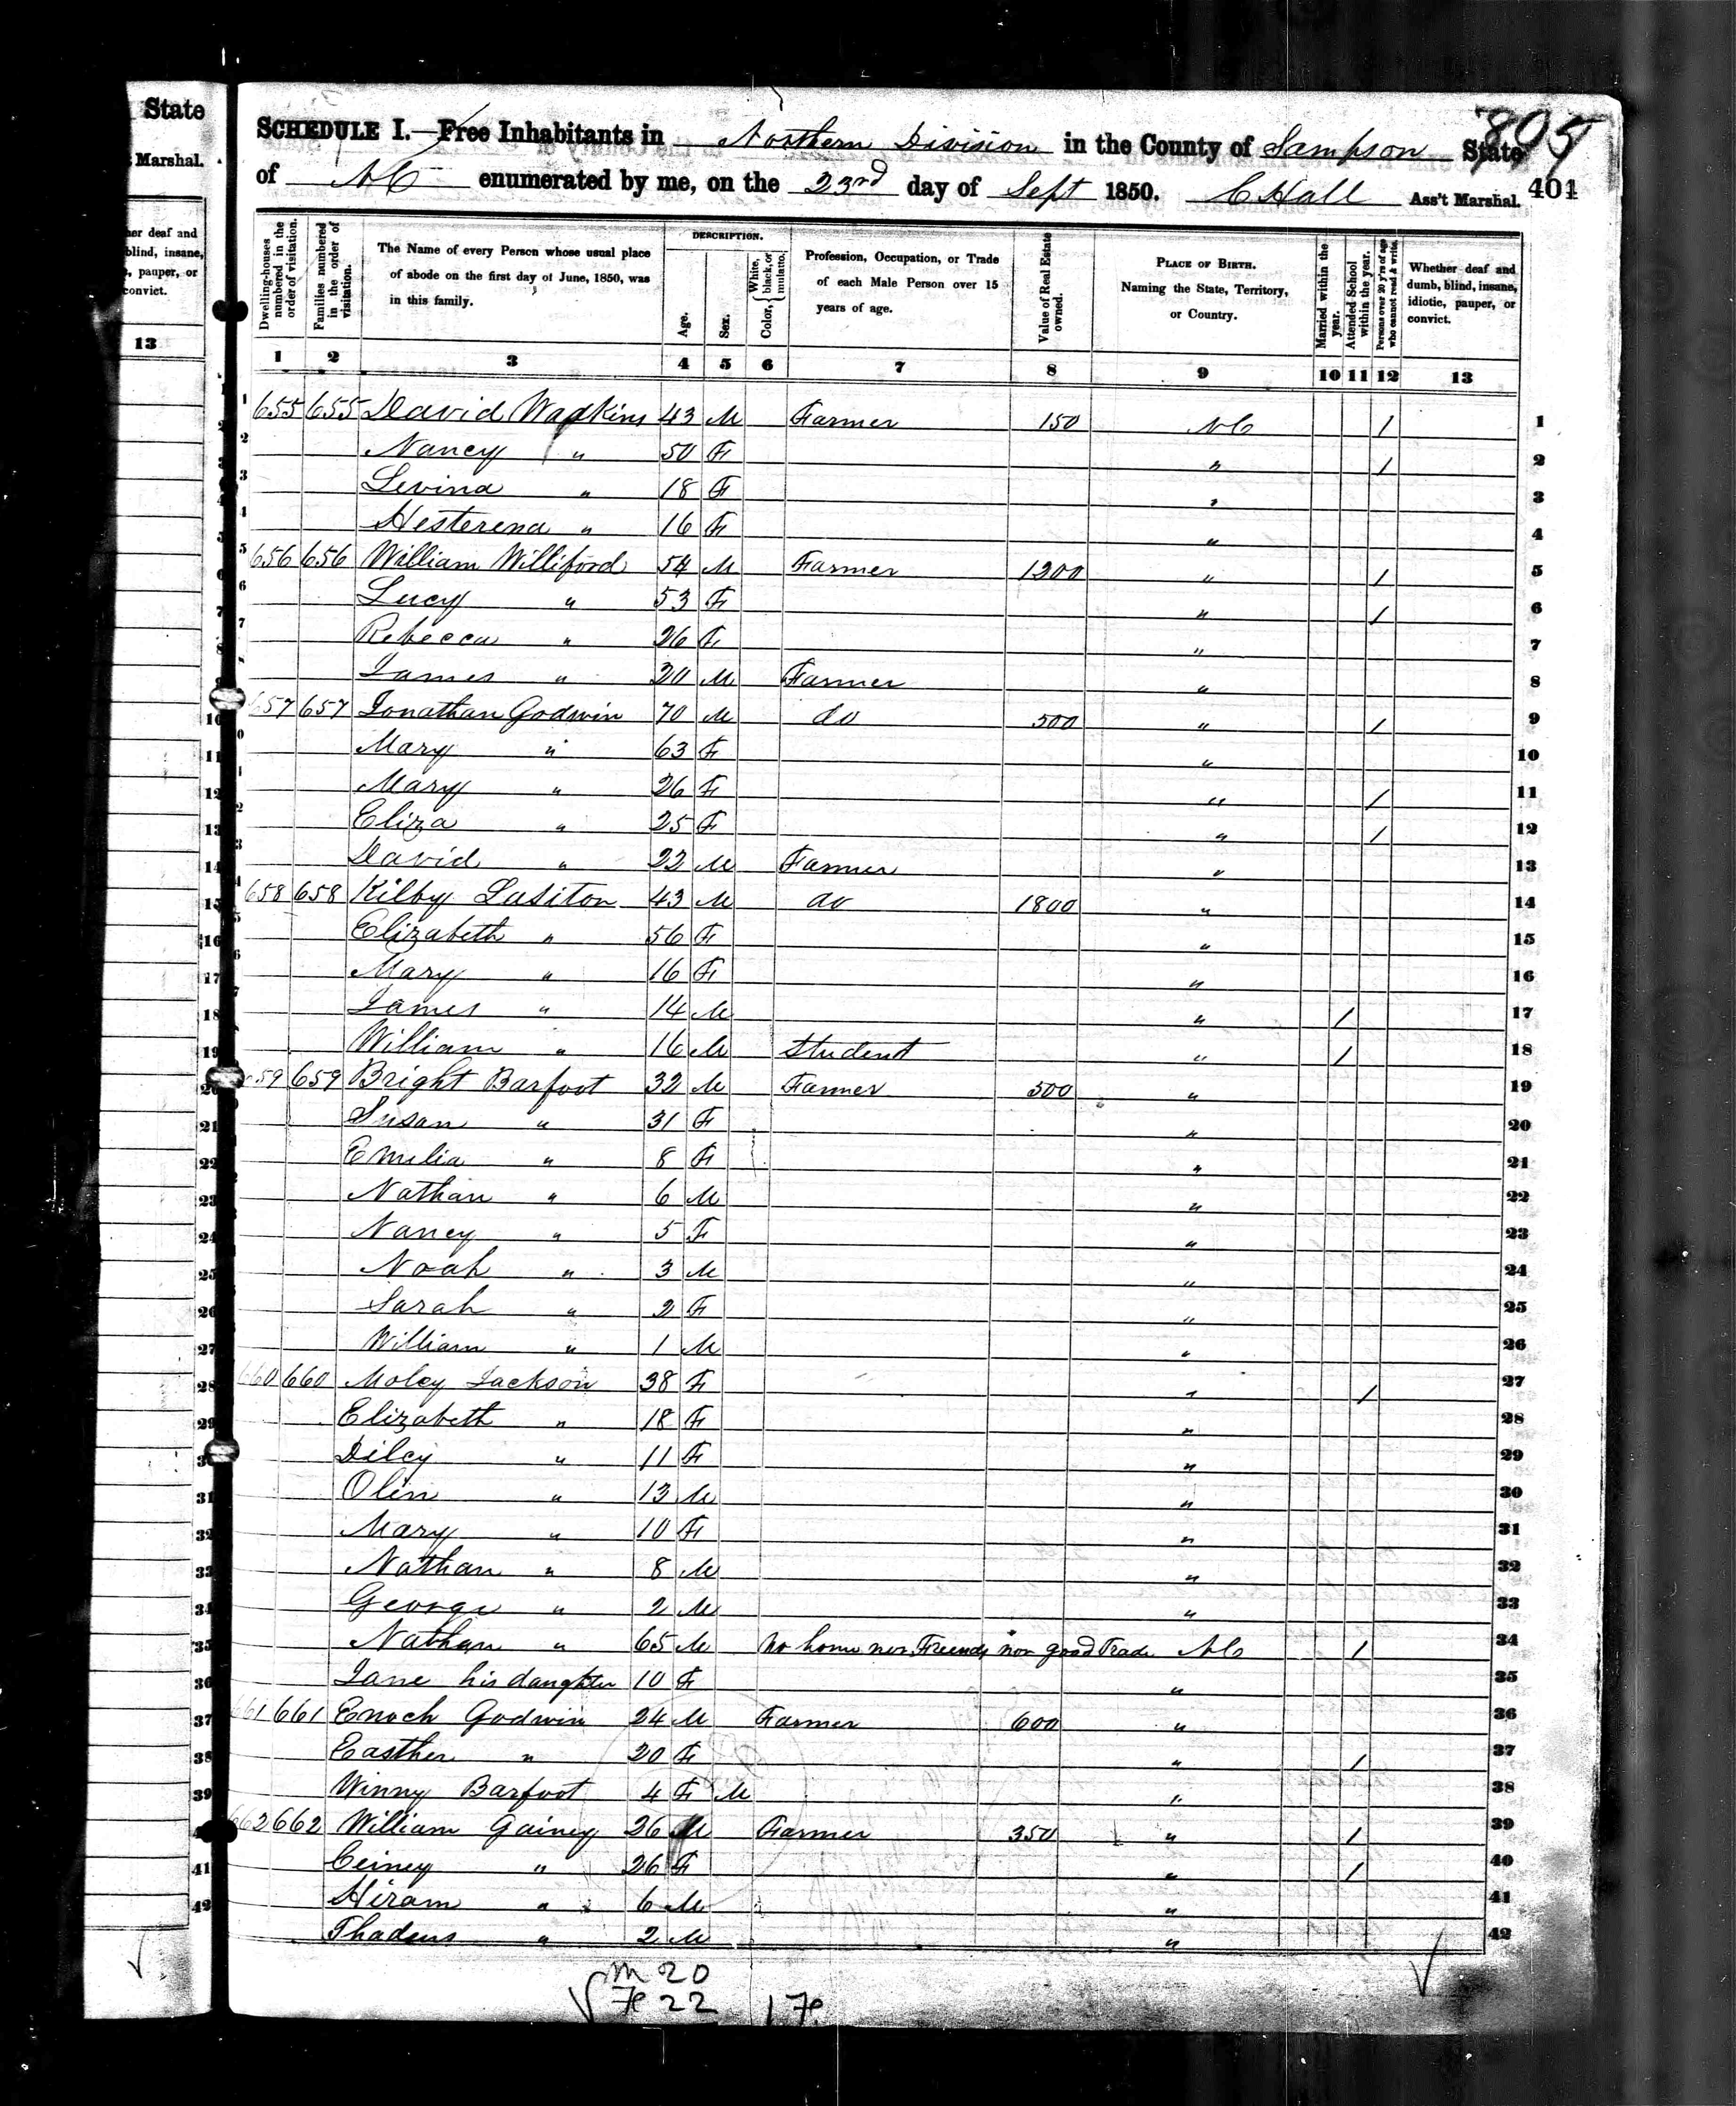 State
Marshal.
her deaf and
blind, insane,
, pauper, or
convict.
13
805
401
SCHEDULE I.—Free Inhabitants in Northern Division in the County of Sampson State
of NC enumerated by me, on the 23rd day of Sept 1850. C Hall Ass't Marshal.
Dwelling-houses numbered in the order of visitation.
Families numbered in the order of visitation.
The Name of every Person whose usual place of abode on the first day of June, 1850, was in this family.
DESCRIPTION.
Age.
Sex.
Color, { White, black, or mulatto.
Profession, Occupation, or Trade of each Male Person over 15 years of age.
Value of Real Estate owned.
PLACE OF BIRTH. Naming the State, Territory, or Country.
Married within the year.
Attended School within the year.
Persons over 20 y'rs of age who cannot read & write.
Whether deaf and dumb, blind, insane, idiotic, pauper, or convict.
1 2 3 4 5 6 7 8 9 10 11 12 13
655 655 David Wadkins 43 M Farmer 150 NC / 1
Nancy " 50 F " / 2
Levina " 18 F " 3
Hesterena " 16 F " 4
656 656 William Williford 54 M Farmer 1200 " / 5
Lucy " 53 F " / 6
Rebecca " 26 F " 7
James " 20 M Farmer " 8
657 657 Jonathan Godwin 70 M do 500 " / 9
Mary " 63 F " 10
Mary " 26 F " / 11
Eliza " 25 F " / 12
David " 22 M Farmer " 13
658 658 Kilby Lasiton 43 M do 1800 " 14
Elizabeth " 56 F " 15
Mary " 16 F " 16
James " 14 M " / 17
William " 16 M Student " / 18
659 659 Bright Barfoot 32 M Farmer 500 " 19
Susan " 31 F " 20
Emilia " 8 F " 21
Nathan " 6 M " 22
Nancy " 5 F " 23
Noah " 3 M " 24
Sarah " 2 F " 25
William " 1 M " 26
660 660 Moley Jackson 38 F " / 27
Elizabeth " 18 F " 28
Dilcy " 11 F " 29
Olin " 13 M " 30
Mary " 10 F " 31
Nathan " 8 M " 32
George " 2 M " 33
Nathan " 65 M No home nor Friends nor good Trade NC / 34
Jane his daughter 10 F " 35
661 661 Enoch Godwin 24 M Farmer 600 " 36
Easther " 20 F " / 37
Winny Barfoot 4 F M " 38
662 662 William Gainey 26 M Farmer 350 " / 39
Ceiney " 26 F " / 40
Hiram " 6 M " 41
Thadeus " 2 M " 42
M 20
Fe 22 1 Fe